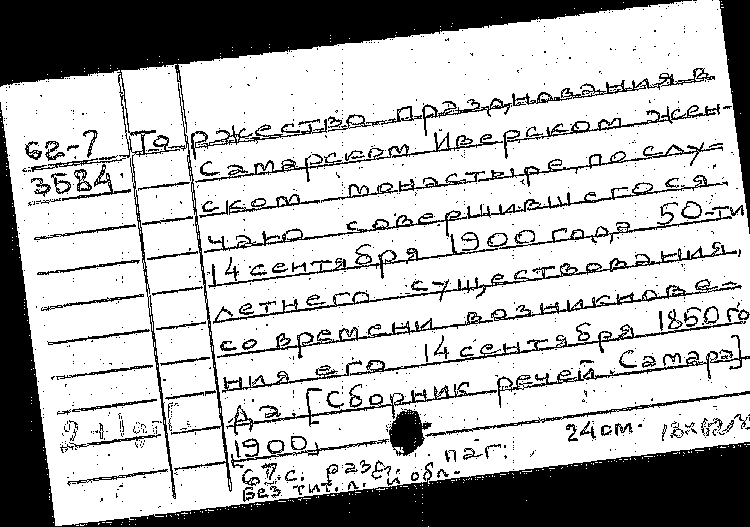 62-7 Торжество празднования в
3584 Самарском Иверском жен-
ском монастыре, по слу-
чаю совершившегося
14 сентября 1900 года 50-ти
летнего существования,
со времени возникнове-
ния его 14 сентября 1850 го
да. [Сборник речей. Самара]
1900.
24 см.
67. с. разд. паг.
Без тит. л. и обл.